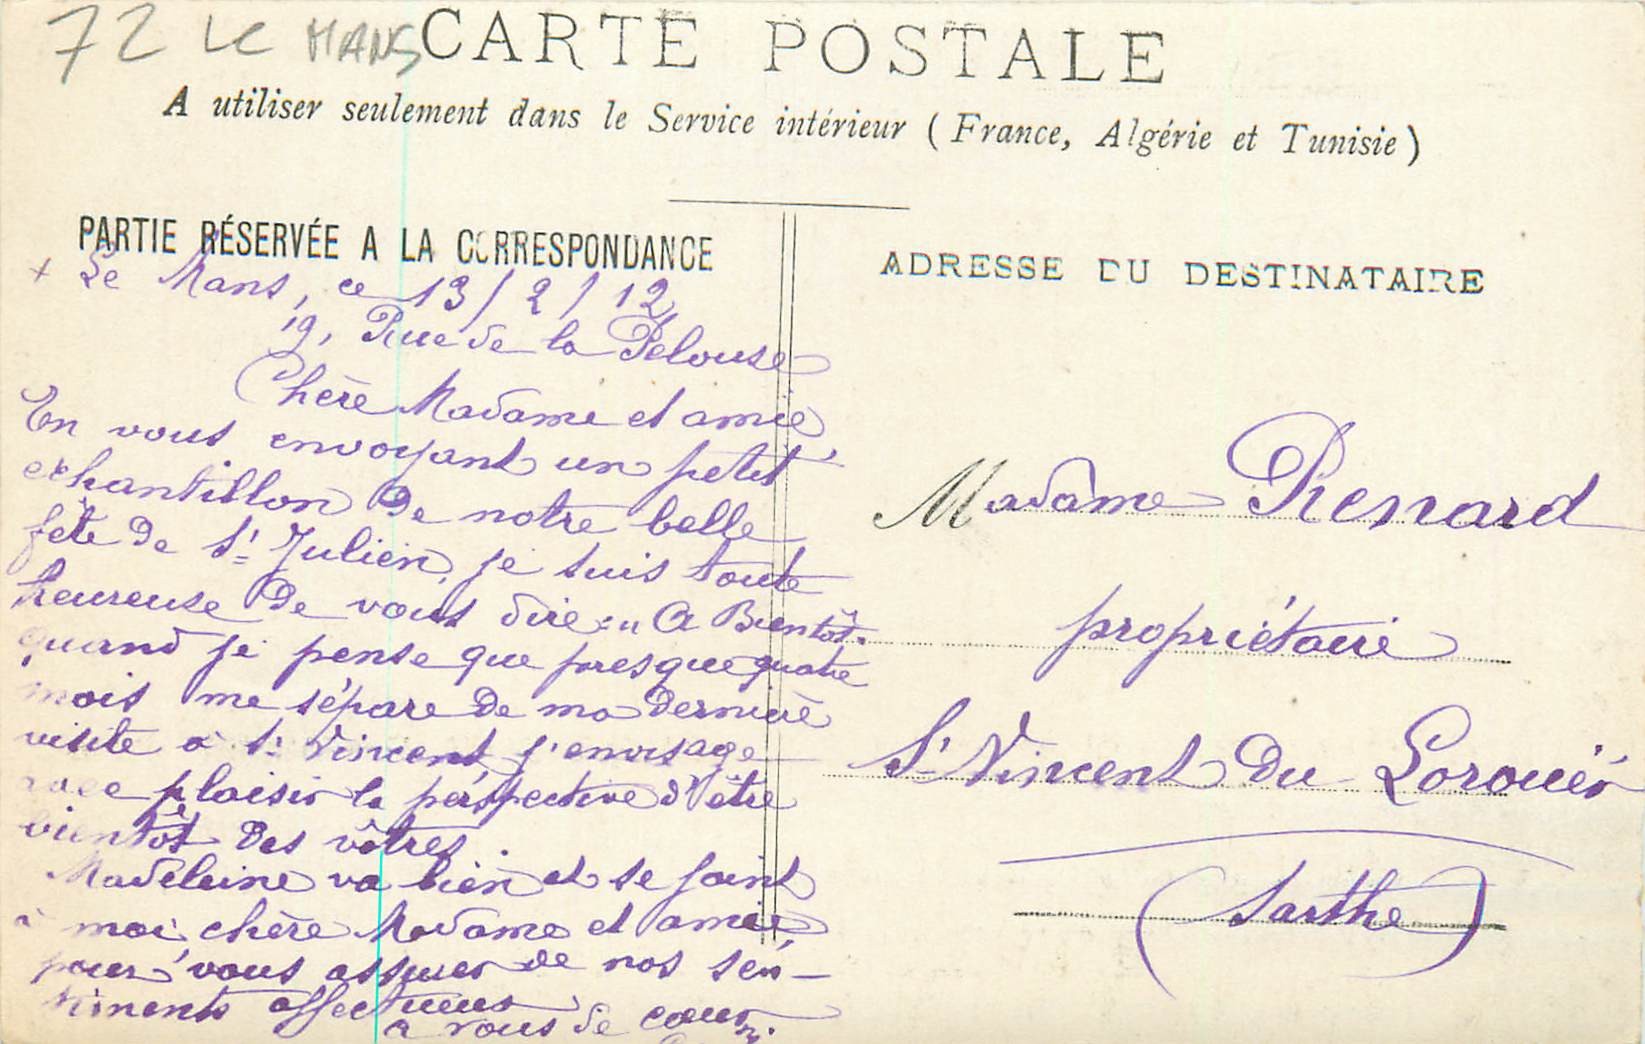 72 LE MANS
CARTE POSTALE
A utiliser seulement dans le Service intérieur (France, Algérie et Tunisie)
PARTIE RÉSERVÉE A LA CORRESPONDANCE
+ Le Mans, ce 13/2/12
19, Rue de la Pelouse
Chère Madame et amie,
En vous envoyant un petit
échantillon de notre belle
fête de St Julien, je suis toute
heureuse de vous dire : "A Bientôt.
quand je pense que presque quatre
mois me sépare de ma dernière
visite à St Vincent j'envisage
avec plaisir la perspective d'être
bientôt des vôtres.
Madeleine va bien et se joint
à moi chère Madame et amie
pour vous assurer de nos sen-
timents affectueux
à vous de cœur
ADRESSE DU DESTINATAIRE
Madame Renard
propriétaire
St Vincent du Lorouër
(Sarthe)